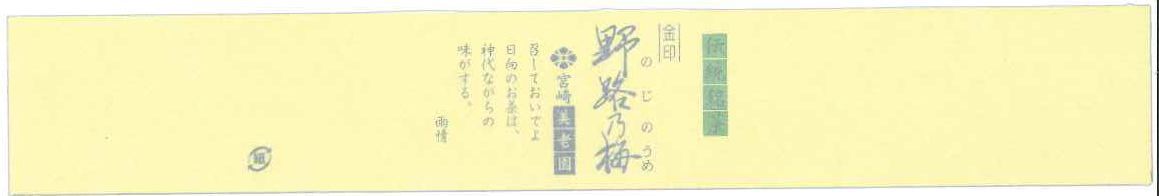 伝統銘茶
金印
野路乃梅
のじのうめ
宮崎 美老園
召しておいでよ
日向のお茶は、
神代ながらの
味がする。
雨情
紙